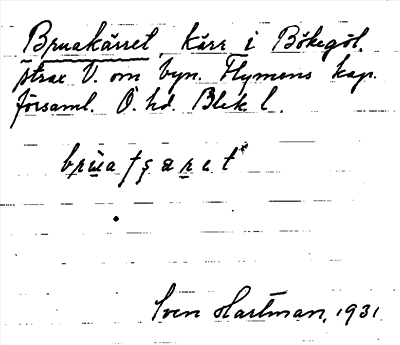 Bruakärret, Kärr i Bökegöl,
strax V. om byn. Flymens kap.
församl. Ö. hd. Blek. l.
Sven Hartman, 1931